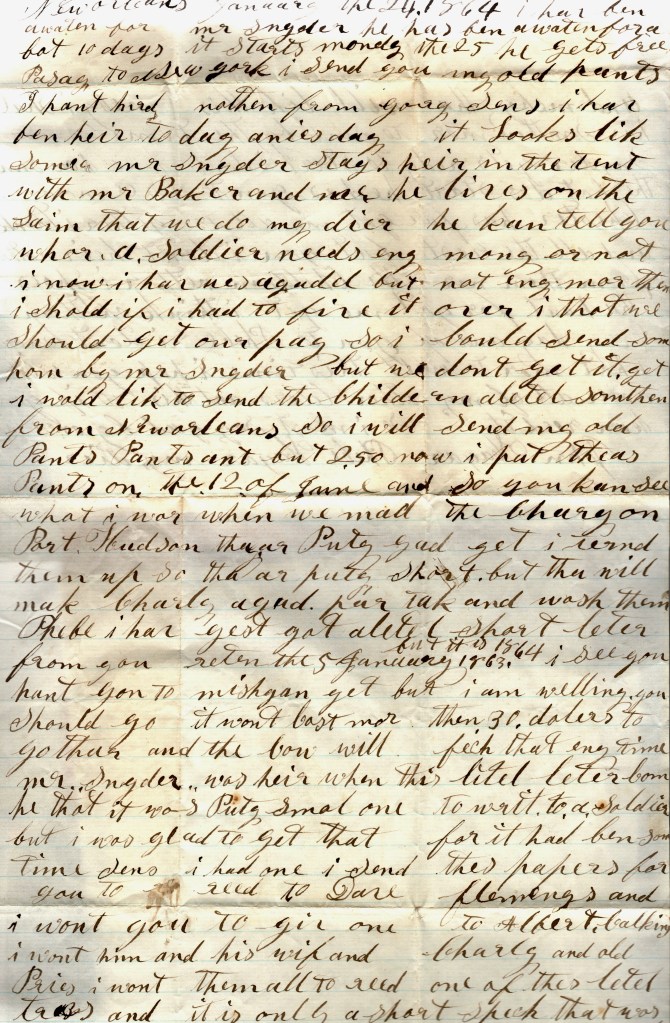 Neworleans January the 24. 1864 i har ben
awaten for mr Snyder he has ben awaten for a
bot 10 days it starts mondy the 25 he gets free
Pasag to New york i send you my old pants
I hant hird nothen from gorg sens i har
ben heir to day anies day it Looks lik
Some mr Snyder Stays heir in the tent
with mr Baker and me he lives on the
Saim that we do my dier he kan tell you
whor. a. Soldier needs eny mony or not
i now i har ues agudel but not eny mor then
i Shold if i had to fire it over i that we
Should get our pay So i Could Send som
hom by mr Snyder but we dont get it. yet
i wold lik to Send the Childern aletel Somthen
from Neworleans So i will Send my old
Pants Pants ant but 2.50 now i put theas
Pants on. the 12. of June and So you kan See
what i wor when we mad the Charg on
Port. Hudson tha ar Puty gud yet i ternd
them up So tha ar puty Short. but tha will
mak Charly agud. par tak and wash them
Phebe i har gest got aletel Short leter
from you reten the 5 January 1863. but it is 1864 i see you
hant gon to mishgan yet but i am welling. you
Should go it wont Cost mor then 30. dolers to
go thar and the Cow will fech that eny time
mr. Snyder. was heir when this litel leter Com
he that it was Puty Smal one to writ. to. a. Soldier
but i was glad to get that for it had ben som
time Sens i had one i Send thes papers for
you to reed to Dave flemings and
i wont you to giv one to Albert. Calkins
i wont him and his wif and Charly and old
Pries i wont them all to reed one of thes letel
and it is only a Short Speck that was